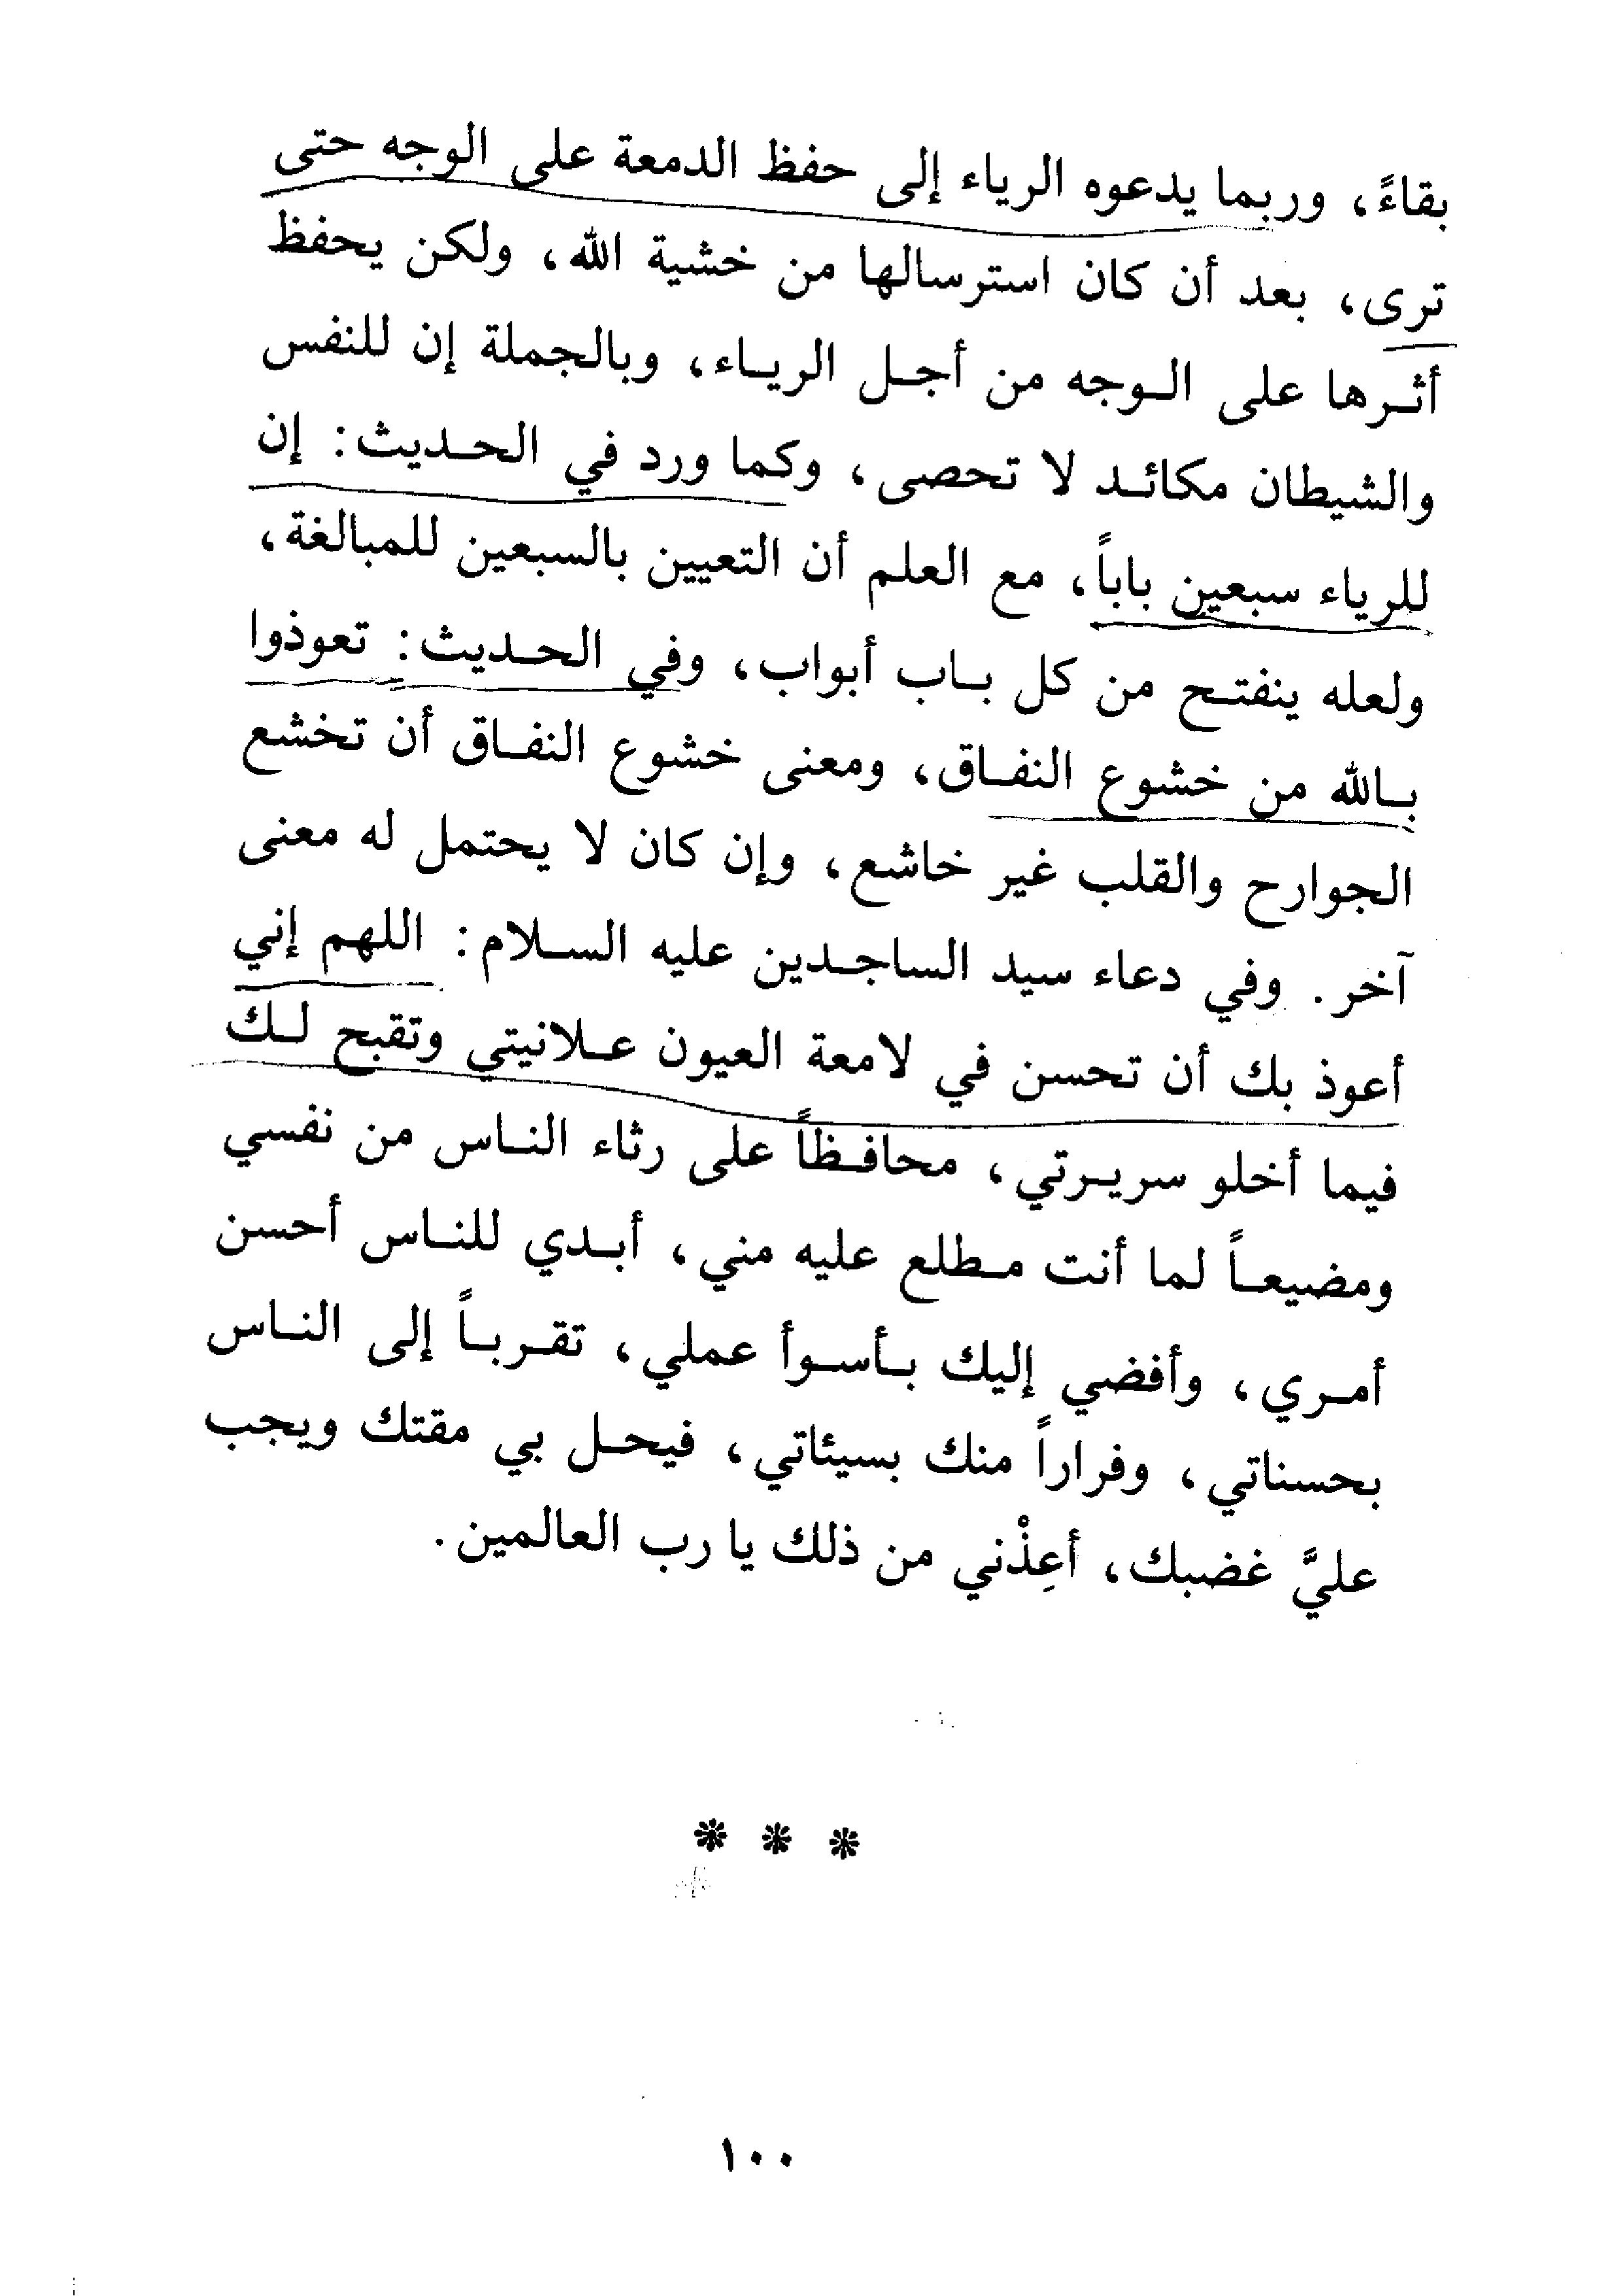 بقاءً، وربما يدعوه الرياء إلى حفظ الدمعة على الوجه حتى
ترى، بعد أن كان استرسالها من خشية الله، ولكن يحفظ
أثرها على الوجه من أجل الرياء، وبالجملة إن للنفس
والشيطان مكائد لا تحصى، وكما ورد في الحديث: إن
للرياء سبعين باباً، مع العلم أن التعيين بالسبعين للمبالغة،
ولعله ينفتح من كل باب أبواب، وفي الحديث: تعوذوا
بالله من خشوع النفاق، ومعنى خشوع النفاق أن تخشع
الجوارح والقلب غير خاشع، وإن كان لا يحتمل له معنى
آخر. وفي دعاء سيد الساجدين عليه السلام: اللهم إني
أعوذ بك أن تحسن في لامعة العيون علانيتي وتقبح لك
فيما أخلو سريرتي، محافظاً على رثاء الناس من نفسي
ومضيعاً لما أنت مطلع عليه مني، أبدي للناس أحسن
أمري، وأفضي إليك بأسوأ عملي، تقرباً إلى الناس
بحسناتي، وفراراً منك بسيئاتي، فيحل بي مقتك ويجب
عليَّ غضبك، أعِذْني من ذلك يا رب العالمين.
* * *
١٠٠